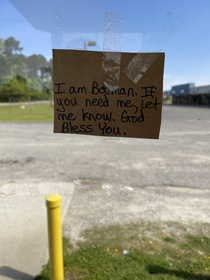 I am Batman. If
you need me, let
me know. God
Bless You.